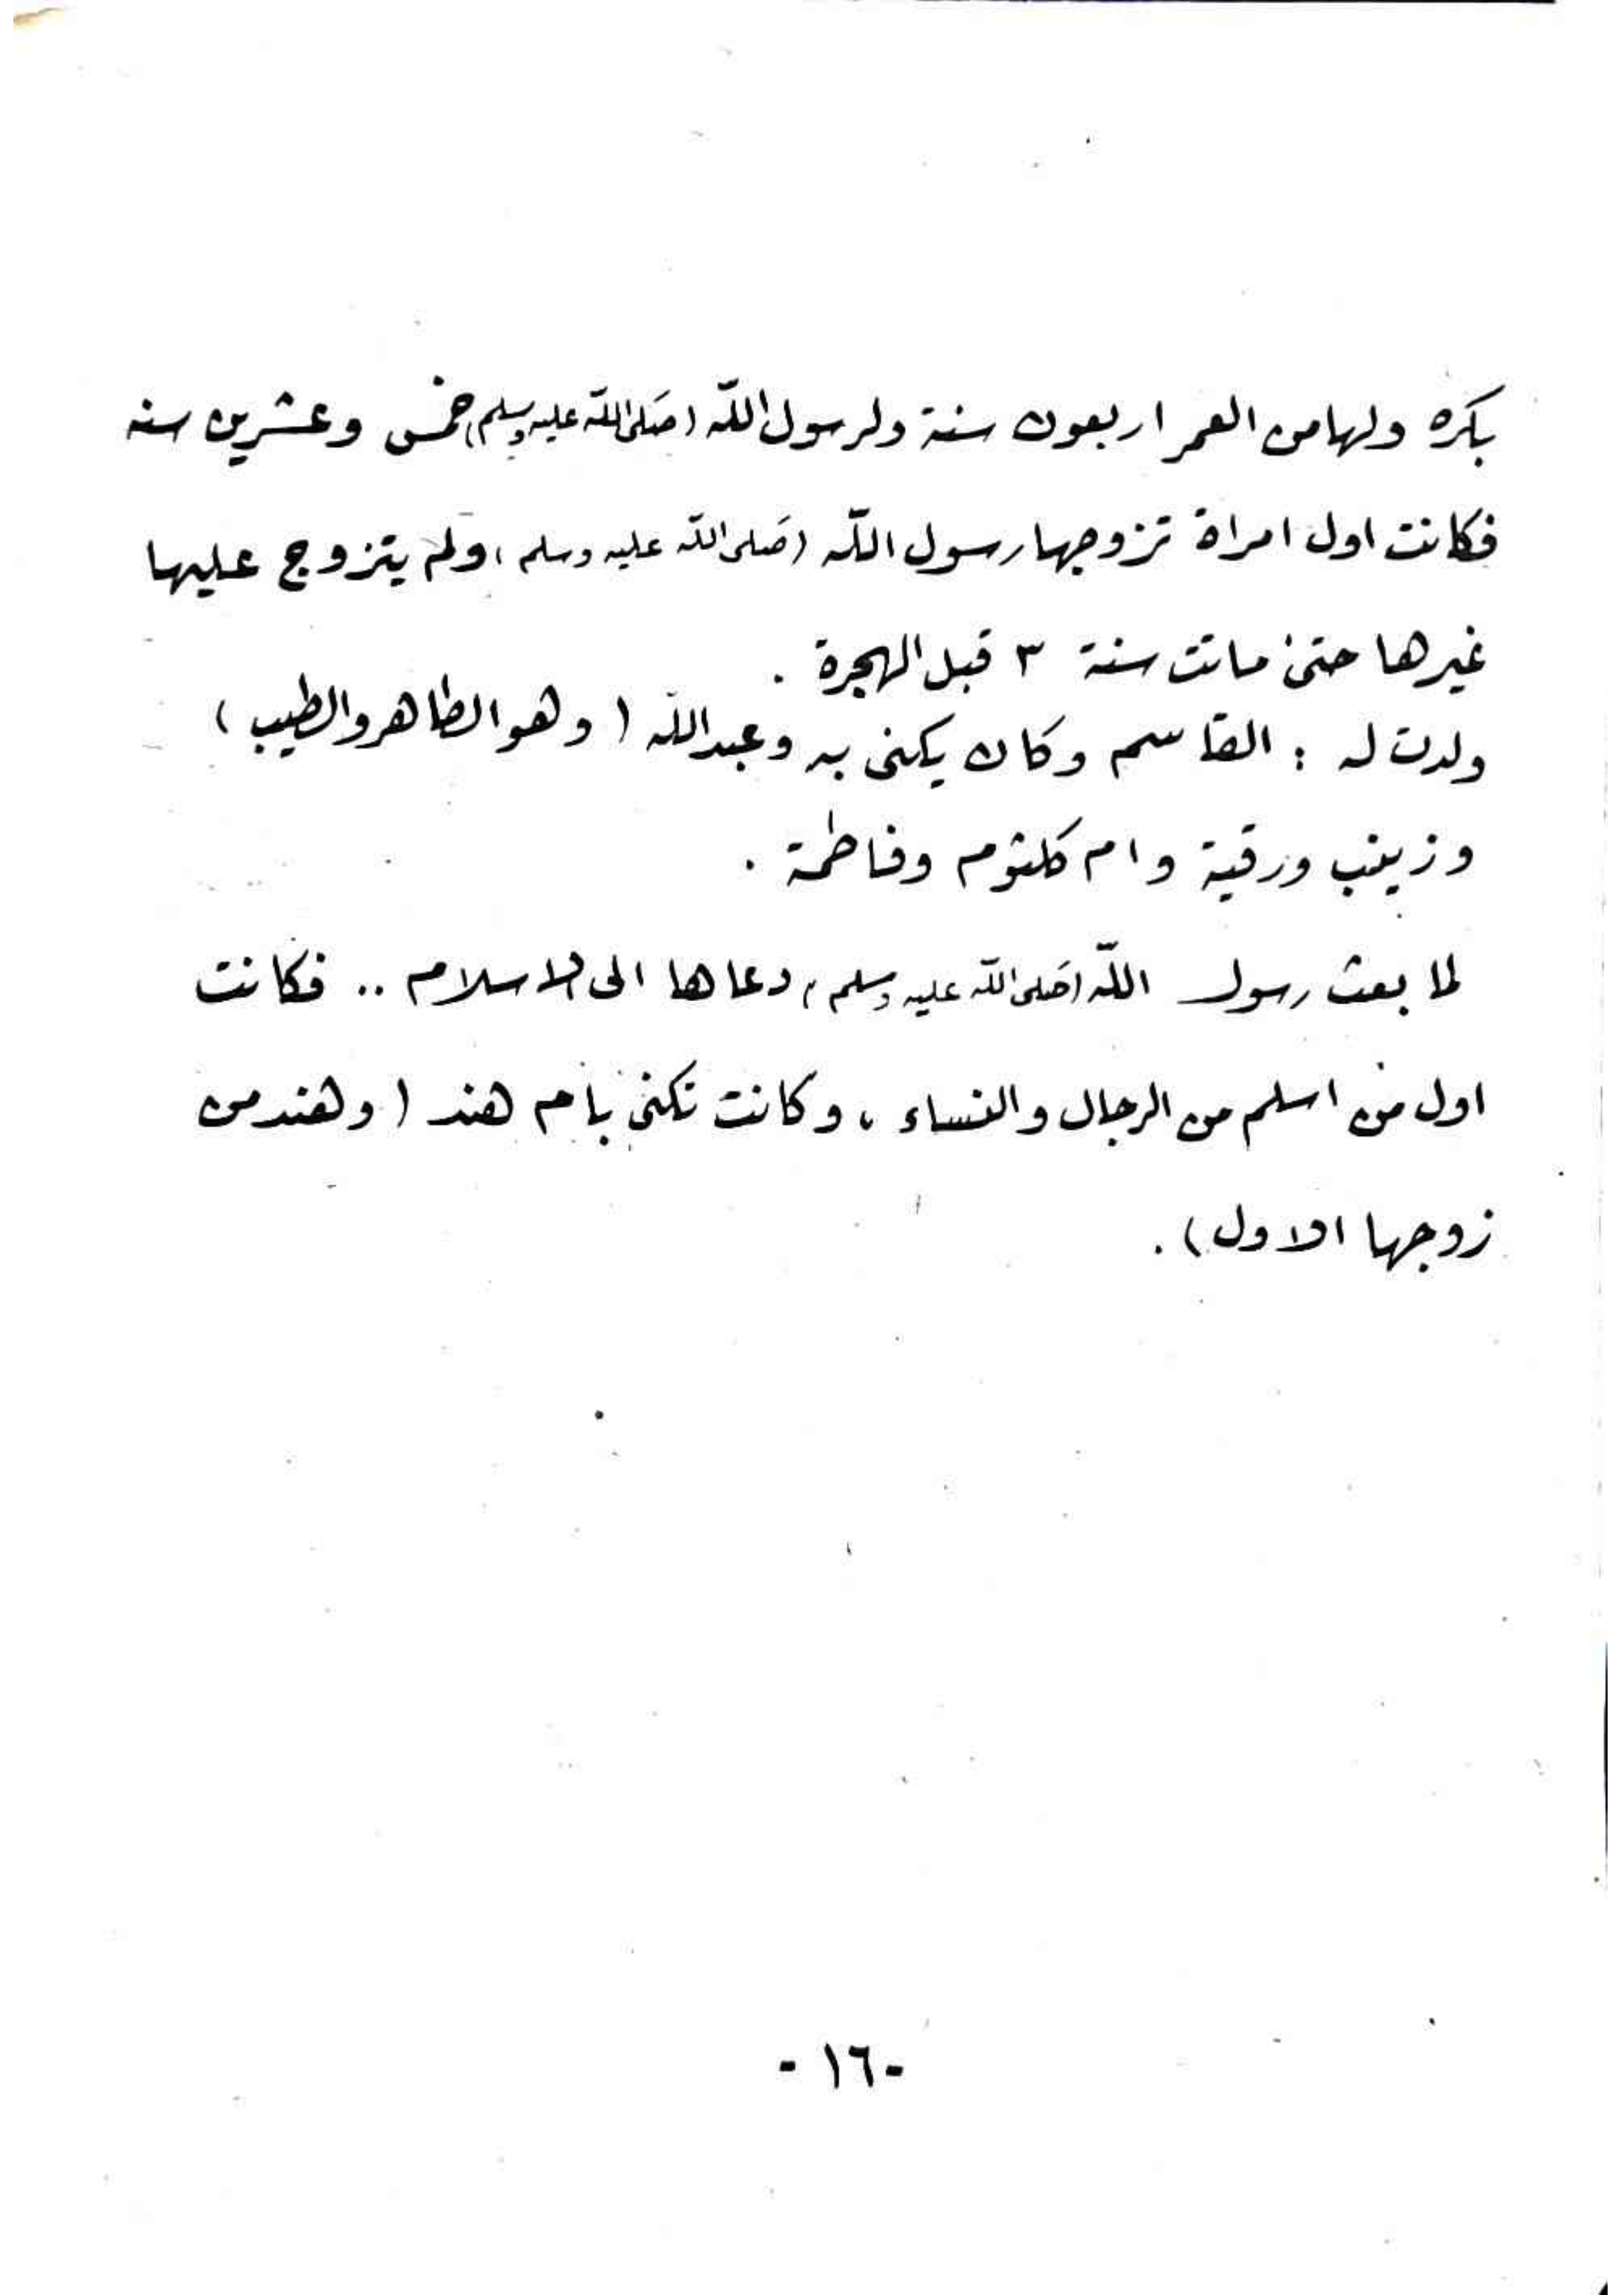 بكره ولها من العمر اربعون سنة ولرسول الله (صلى الله عليه وسلم) خمس وعشرين سنه
فكانت اول امراة تزوجها رسول الله (صلى الله عليه وسلم) ولم يتزوج عليها
غيرها حتى ماتت سنة ٣ قبل الهجرة .
ولدت له : القاسم وكان يكنى به وعبدالله ( وهو الطاهر والطيب )
وزينب ورقية وام كلثوم وفاطمة .
لما بعث رسول الله (صلى الله عليه وسلم) دعاها الى الاسلام .. فكانت
اول من اسلم من الرجال والنساء ، وكانت تكنى بام هند ( وهند من
زوجها الاول ) .
- ١٦ -